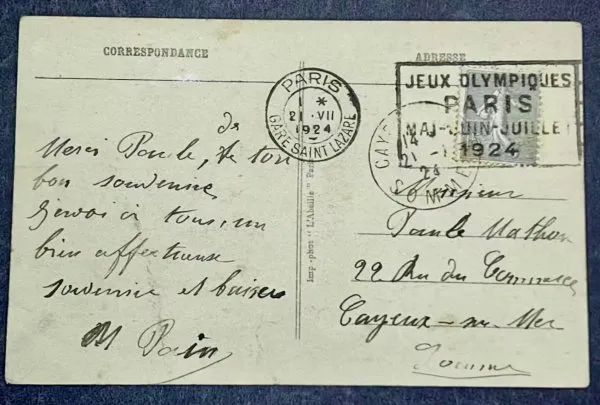 CORRESPONDANCE
ADRESSE
PARIS
1 *
21 VII
1924
GARE SAINT LAZARE
JEUX OLYMPIQUES
PARIS
MAI-JUIN-JUILLET
1924
CAYE
14
21 -
24
SOMME
Merci Paule, de ton
bon souvenir
à tous, un
bien affectueux
souvenir et baisers
M Pain
Imp.-phot "L'Abeille" Paris
Paule Mathon
22 Rue du Commerce
Cayeux-sur-Mer
Somme